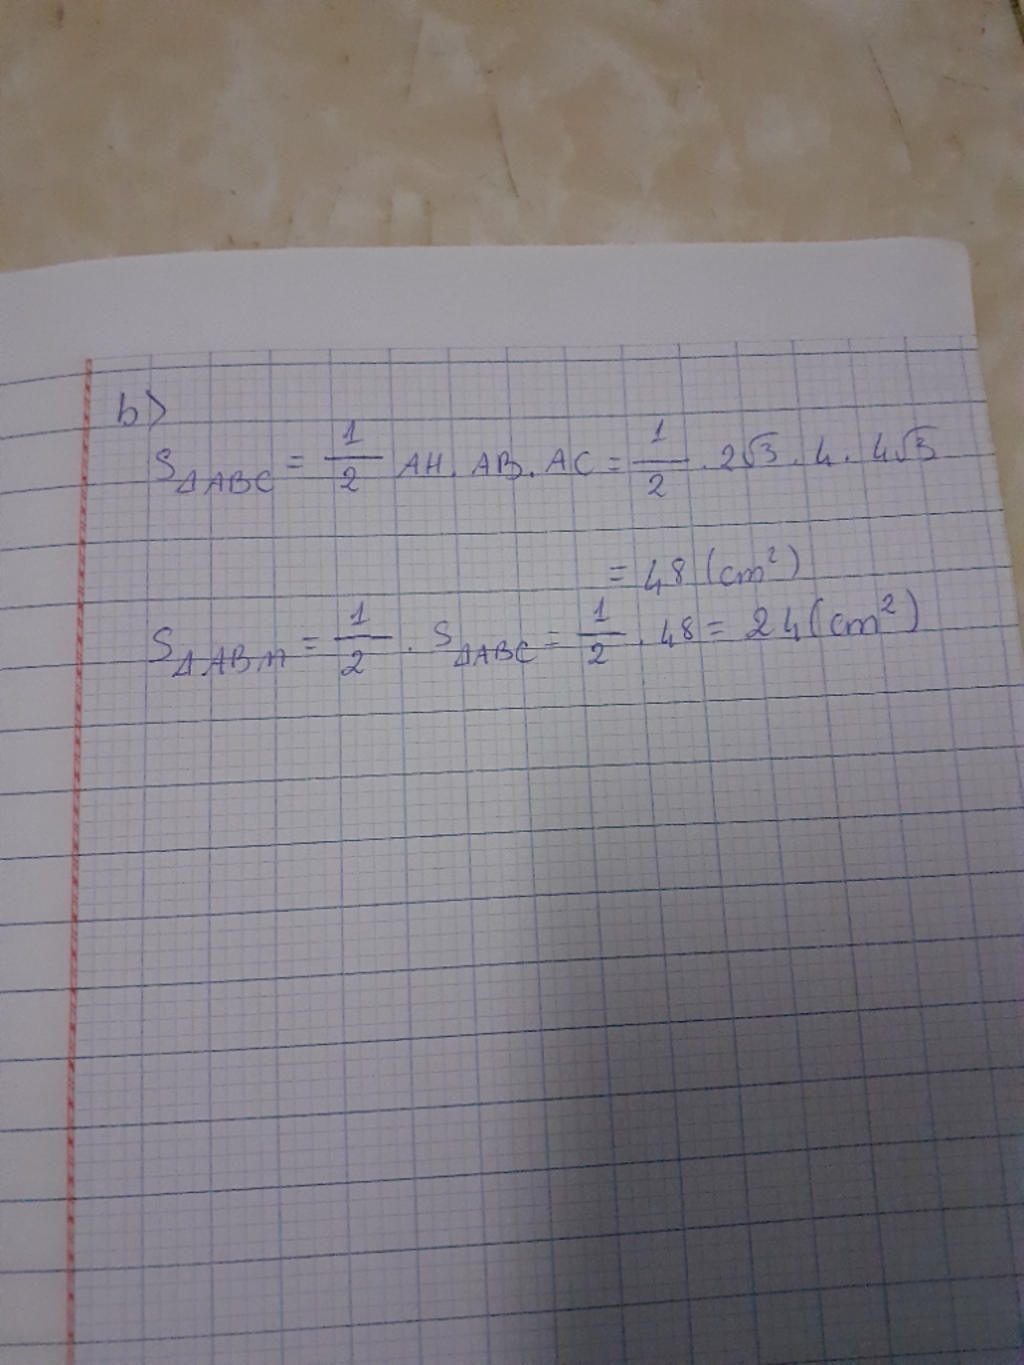 b)
S_{ΔABC} = \frac{1}{2} AH. AB. AC = \frac{1}{2} . 2√3 . 4 . 4√3
= 48 (cm²)
S_{ΔABM} = \frac{1}{2} . S_{ΔABC} = \frac{1}{2} . 48 = 24 (cm²)